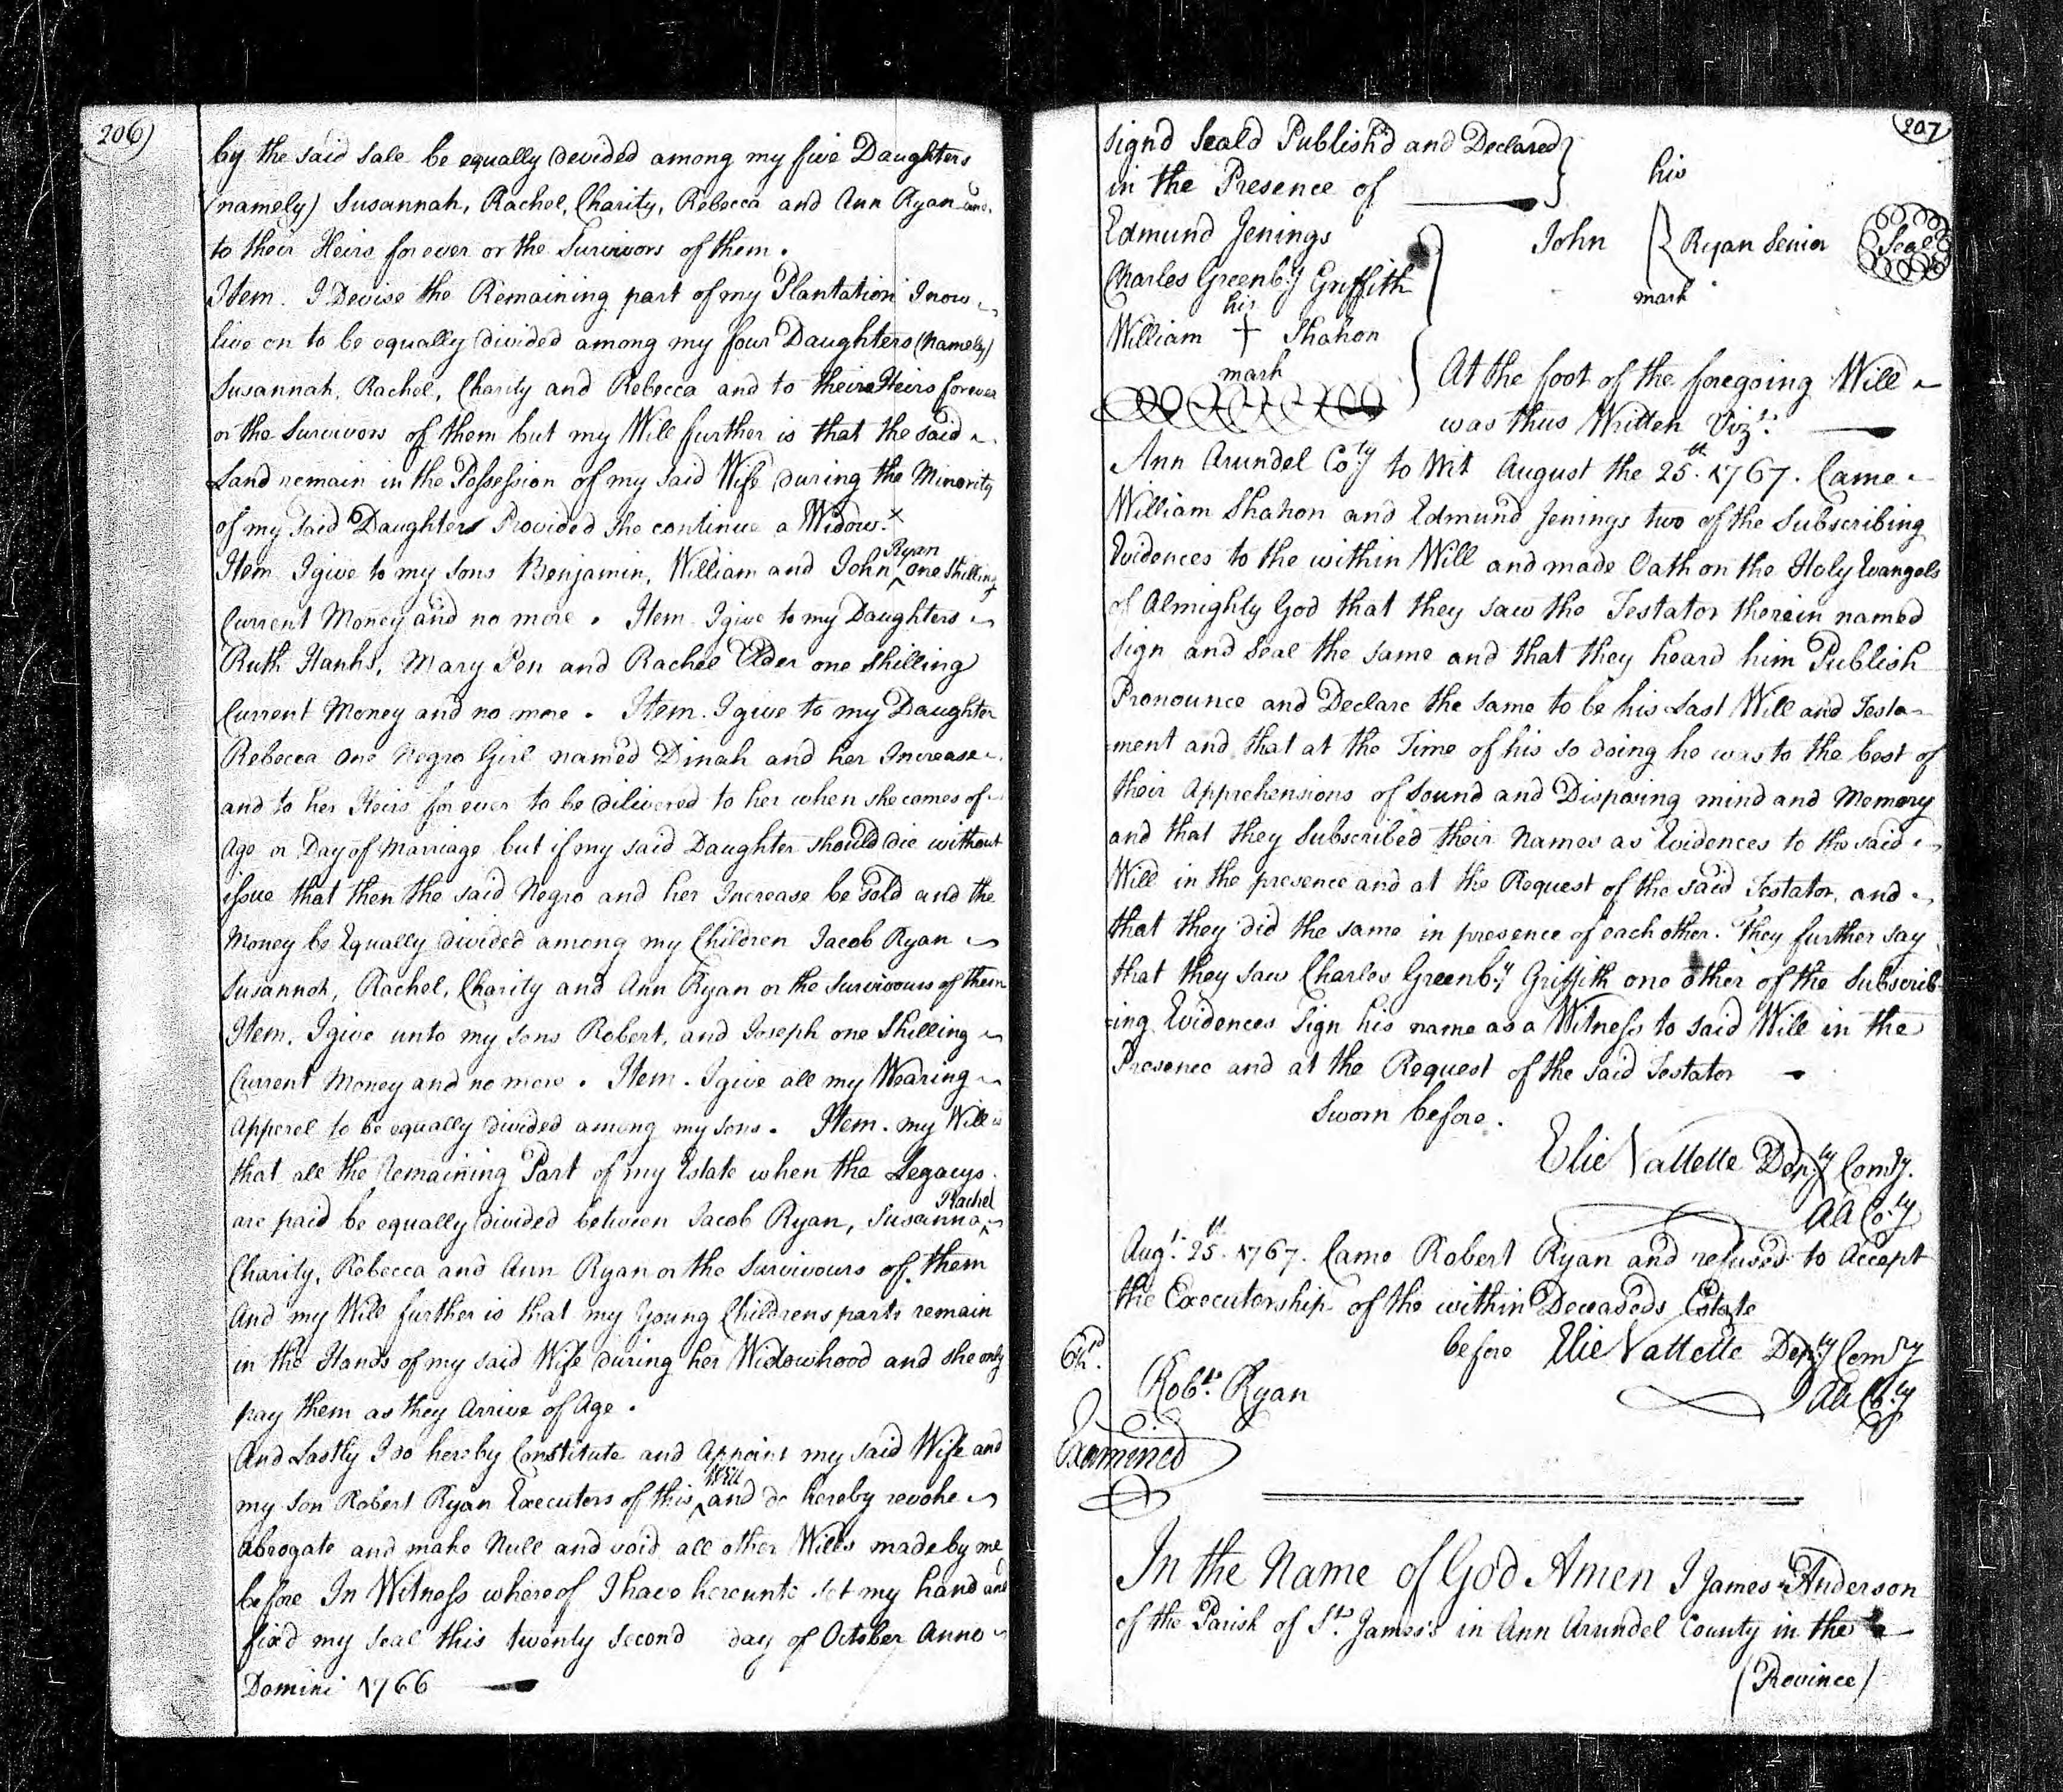 206)
by the said sale be equally devided among my five Daughters
(namely) Susannah, Rachel, Charity, Rebecca and Ann Ryan and
to their Heirs for ever or the Survivors of them.
Item. I Devise the Remaining part of my Plantation I now
live on to be equally divided among my four Daughters (Namely)
Susannah, Rachel, Charity and Rebecca and to theire Heirs forever
or the Survivors of them but my Will further is that the said
Land remain in the Possession of my said Wife during the Minority
of my said Daughters Provided she continue a Widow. x
Item I give to my sons Benjamin, William and John ^Ryan one Shilling
Current Money and no more. Item I give to my Daughters
Ruth Hanks, Mary Pen and Rachel Elder one Shilling
Current Money and no more. Item. I give to my Daughter
Rebecca one Negro Girl named Dinah and her Increase
and to her Heirs for ever to be dilivered to her when she comes of
Age or Day of Marriage but if my said Daughter should die without
issue that then the said Negro and her Increase be Sold and the
Money be Equally divided among my Children Jacob Ryan
Susannah, Rachel, Charity and Ann Ryan or the Survivours of them
Item, I give unto my sons Robert, and Joseph one Shilling
Current Money and no more. Item. I give all my Wearing
Apperel to be equally divided among my sons. Item. my Will is
that all the Remaining Part of my Estate when the Legacys
are paid be equally divided between Jacob Ryan, Susanna, ^Rachel
Charity, Rebecca and Ann Ryan or the Survivours of them
And my Will further is that my Young Childrens parts remain
in the Hands of my said Wife during her Widowhood and she only
pay them as they Arrive of Age.
And Lastly I do hereby Constitute and Appoint my said Wife and
my son Robert Ryan Executers of this ^Will and do hereby revoke
Abrogate and make Null and void all other Wills made by me
before In Witness whereof I have hereunto set my hand and
fixd my seal this twenty second day of October Anno
Domini 1766
207
Signd Seald Publish'd and Declared
in the Presence of
his
John Ryan Senior Seal
mark
Edmund Jenings
Charles Greenb.y Griffith
his
William + Shahon
mark
At the foot of the foregoing Will
was thus Written Viz.t
Ann Arundel Co.ty to Wit August the 25.th 1767. Came
William Shahon and Edmund Jenings two of the Subscribing
Evidences to the within Will and made Oath on the Holy Evangels
of Almighty God that they saw the Testator therein named
sign and Seal the same and that they heard him Publish
Pronounce and Declare the same to be his Last Will and Testa-
=ment and that at the Time of his so doing he was to the best of
their Apprehensions of Sound and Disposing mind and Memory
and that they Subscribed their Names as Evidences to the said
Will in the presence and at the Request of the said Testator, and
that they did the same in presence of each other. They further say
that they saw Charles Greenb.y Griffith one other of the Subscrib-
=ing Evidences sign his name as a Witness to said Will in the
Presence and at the Request of the said Testator
Sworn before.
Elie Vallette Dep.ty Com.ry
AA Co.ty
Aug.t 25.th 1767. Came Robert Ryan and refused to Accept
the Executorship of the within Deceaseds Estate
before Elie Vallette Dep.ty Com.ry
AA Co.ty
Rob.t Ryan
Examined
In the Name of God Amen I James Anderson
of the Parish of S.t James's in Ann Arundel County in the
(Province)